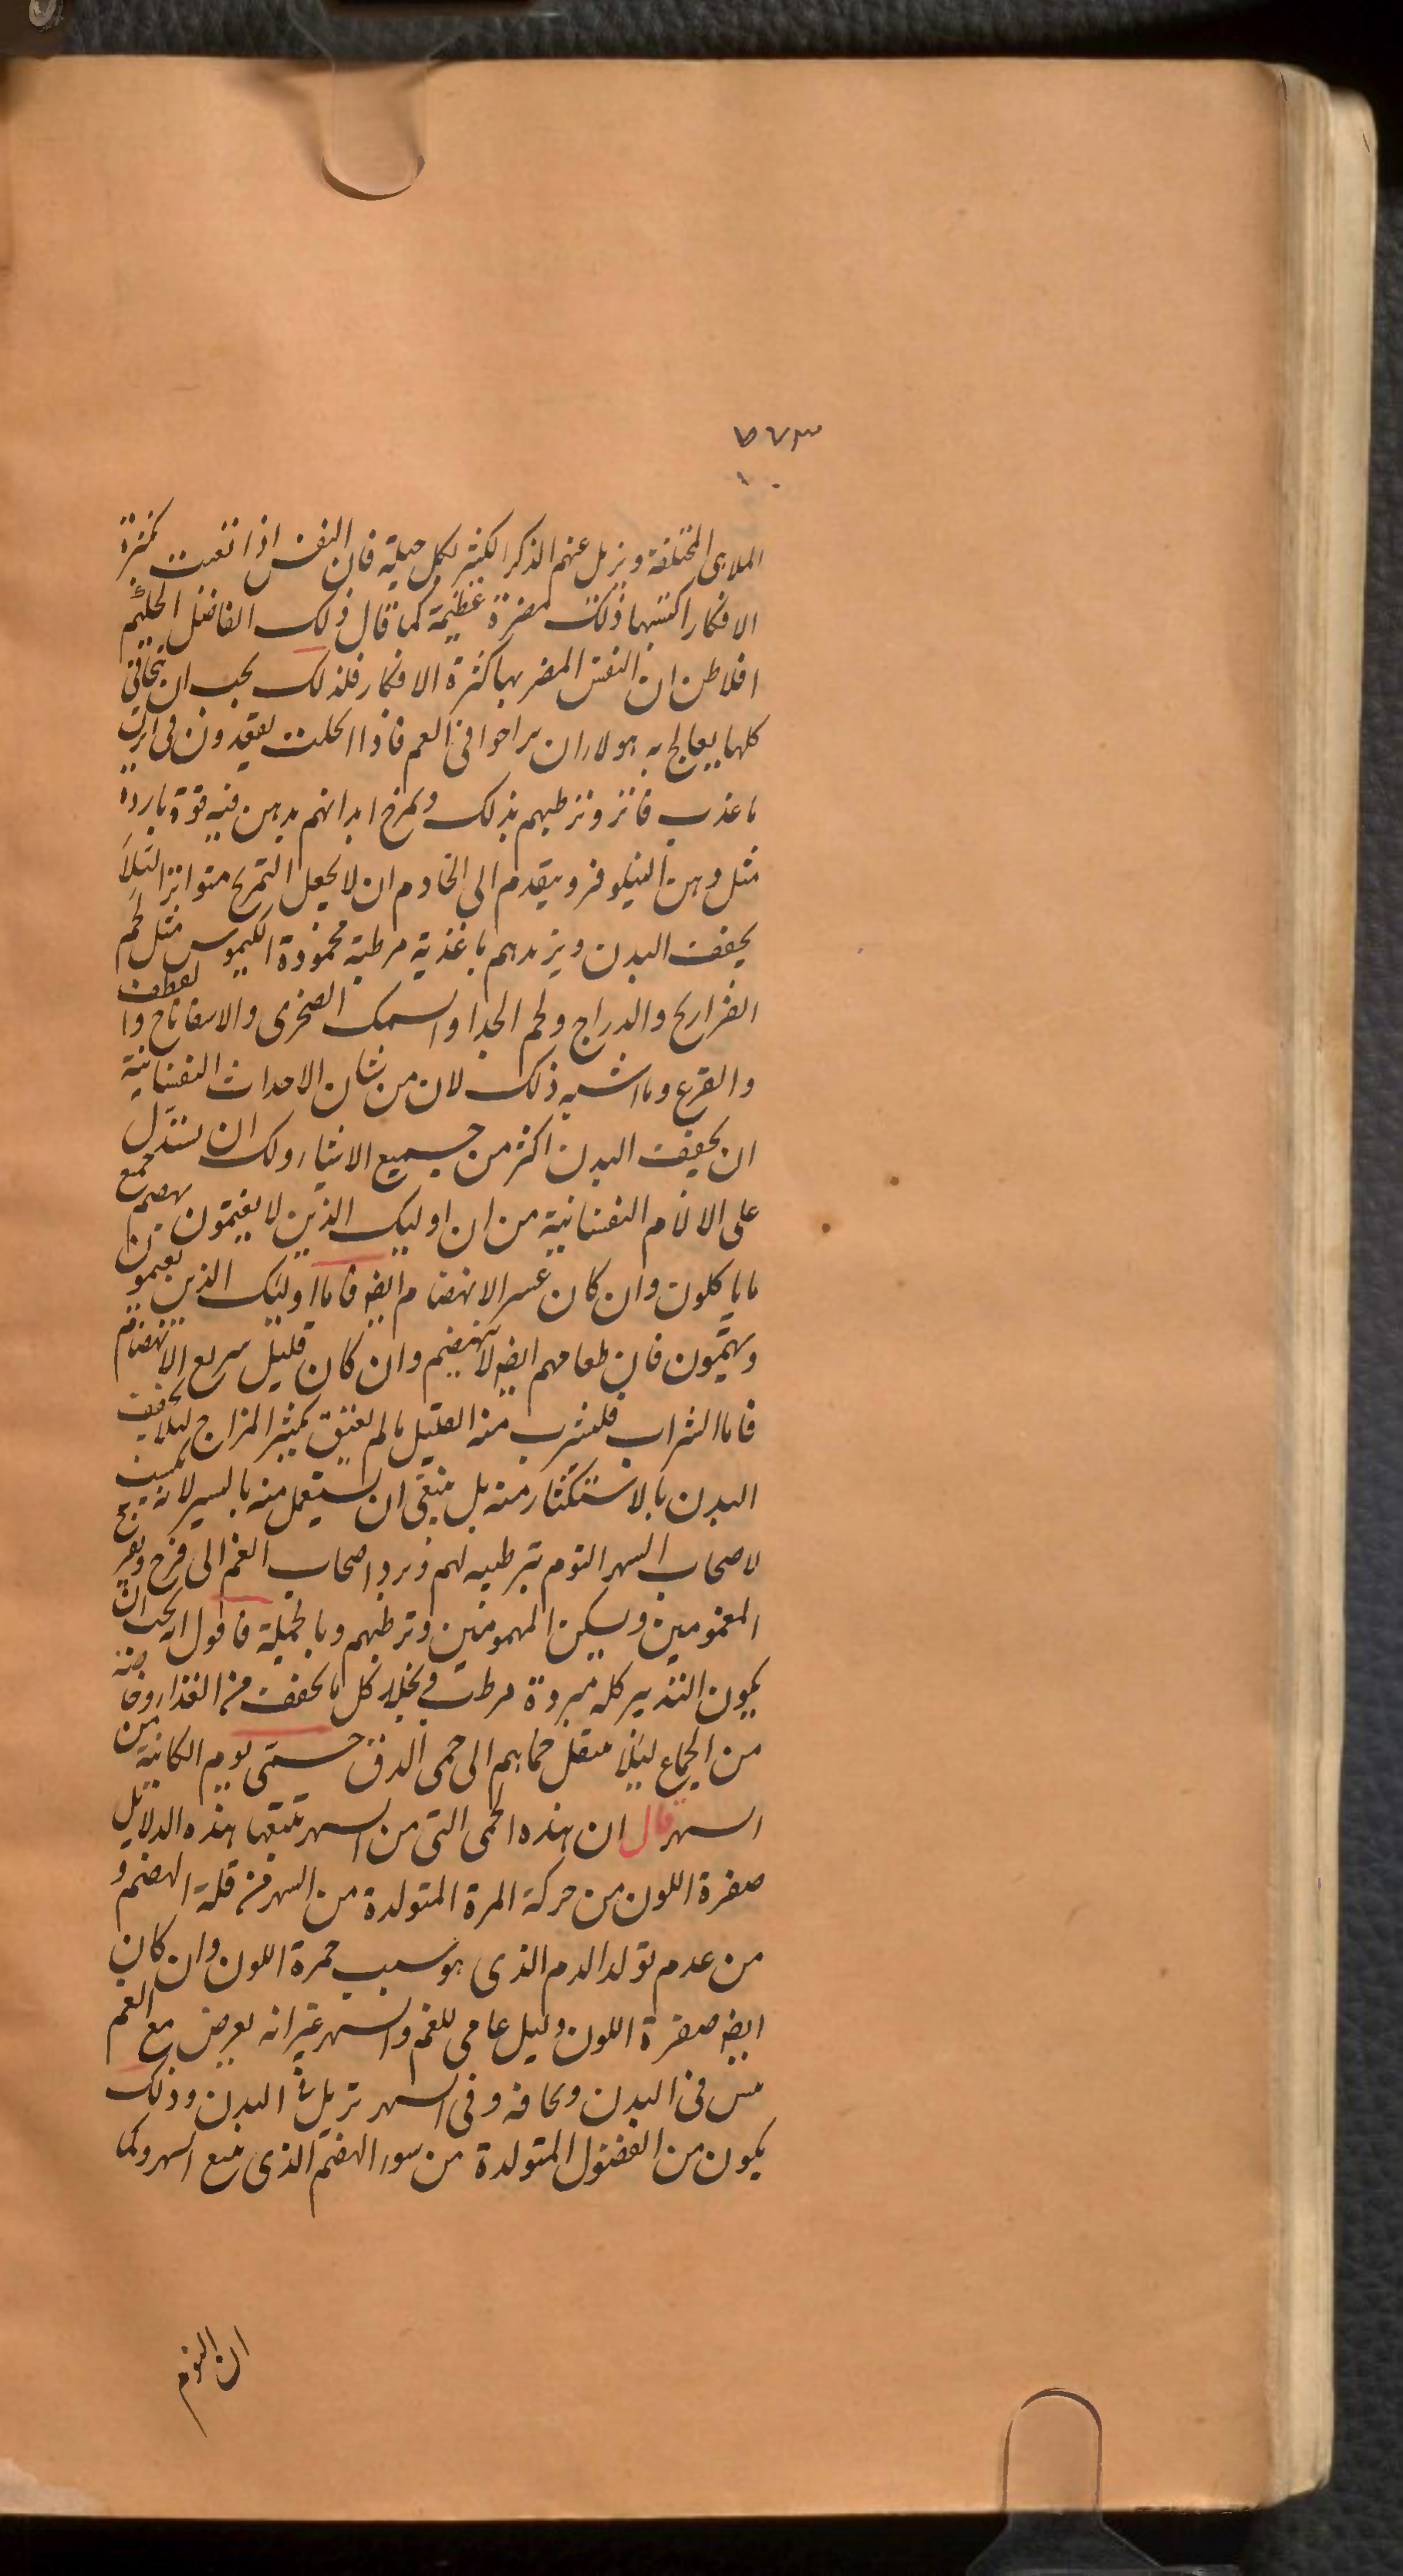 ٥٧٣
الملاهى المختلفة ويزيل عنهم الذكر الكثير بكل حيلة فان النفس اذا تعبت بكثرة
الافكار اكسبها ذلك مضرة عظيمة كما قال ذلك الفاضل الحكيم
افلاطن ان النفس المضر بها كثرة الافكار فلذلك يجب ان
كلها يعالج به هولاء ان يراحوا فى الغم فاذا انحلت يقعدون فى ابزن
ما عذب فاتر وترطبهم بذلك ويمرخ ابدانهم بدهن فيه قوة باردة
مثل دهن النيلوفر ويتقدم الى الخادم ان لا يجعل التمريخ متواترا لئلا
يجفف البدن ويزيدهم باغذية مرطبة محمودة الكيموس مثل لحم
الفراريج والدراج ولحم الجدا والسمك الصخرى والاسفاناخ والقطف
والقرع وما اشبه ذلك لان من شان الاحداث النفسانية
ان يجفف البدن اكثر من جميع الاشياء ولك ان يستدل
على الالام النفسانية من ان اوليك الذين لا يغتمون يهضم جميع
ما ياكلون وان كان عسر الانهضام ايضا فاما اوليك الذين يغتمون
ويهتمون فان طعامهم ايضا لا ينهضم وان كان قليل سريع الانهضام
فاما الشراب فليشرب منه القليل ما لم يعتق بكثير المزاج لئلا يجفف
البدن بالاستكثار منه بل ينبغى ان يستعمل منه باليسير لانه يكسب
لاصحاب السهر النوم بترطيبه لهم ويرد اصحاب الغم الى فرح ويفرح
المغمومين ويسكن المهمومين وترطبهم وبالجملة فاقول انه يجب ان
يكون التدبير كله مبردة مرطب ويجلد كل ما يجفف من الغذاء وخاصة
من الجماع لئلا ينقل حماهم الى حمى الدق حمى يوم الكائنة من
السهر قال ان هذه الحمى التى من السهر تتبعها هذه الدلايل
صفرة اللون من حركة المرة المتولدة من السهر من قلة الهضم و
من عدم تولد الدم الذى هو سبب حمرة اللون وان كان
ايضا صفرة اللون دليل عامى للغم والسهر غير انه يعرض مع الغم
يبس فى البدن ونحافة وفى السهر تربل فى البدن وذلك
يكون من الفضول المتولدة من سوء الهضم الذى يتبع السهر وكما
ان النوم